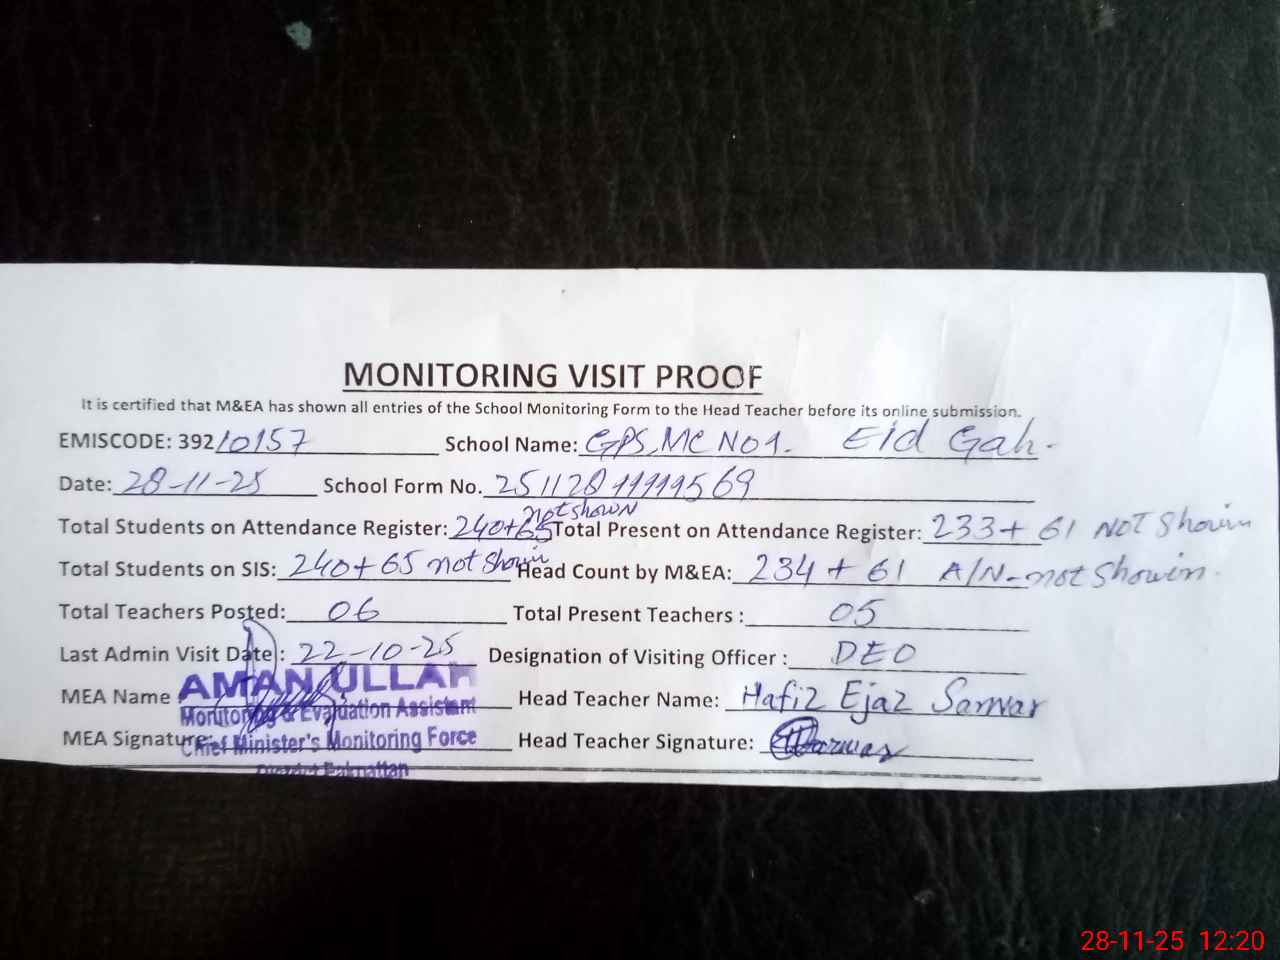 MONITORING VISIT PROOF
It is certified that M&EA has shown all entries of the School Monitoring Form to the Head Teacher before its online submission.
EMISCODE: 39210157 School Name: GPS, MC NO1. Eid Gah.
Date: 28-11-25 School Form No. 25112811111569
not shown
Total Students on Attendance Register: 240+65 Total Present on Attendance Register: 233+ 61 NOT Showin
Total Students on SIS: 240+65 not Showin Head Count by M&EA: 234 + 61 A/N-not Showin.
Total Teachers Posted: 06 Total Present Teachers : 05
Last Admin Visit Date: 22-10-25 Designation of Visiting Officer : DEO
MEA Name AMAN ULLAH Head Teacher Name: Hafiz Ejaz Sarwar
Monitoring & Evaluation Assistant
MEA Signature: Chief Minister's Monitoring Force Head Teacher Signature:
District Pakpattan
28-11-25 12:20